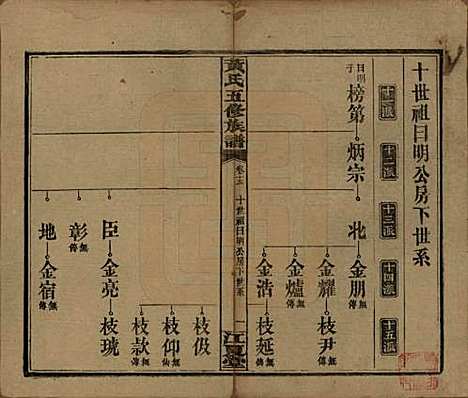 十世祖日明公房下世系
十一派
十二派
十三派
十四派
十五派
日明子
榜第
炳宗
北
金朋
無傳
金耀
枝尹
無傳
金爐
無傳
金浩
枝延
無傳
黃氏五修族譜
卷十五
十世祖日明公房下世系
江夏堂
枝伋
枝仰
無傳
枝款
無傳
臣
金亮
枝琥
彰
無傳
地
金宿
無傳